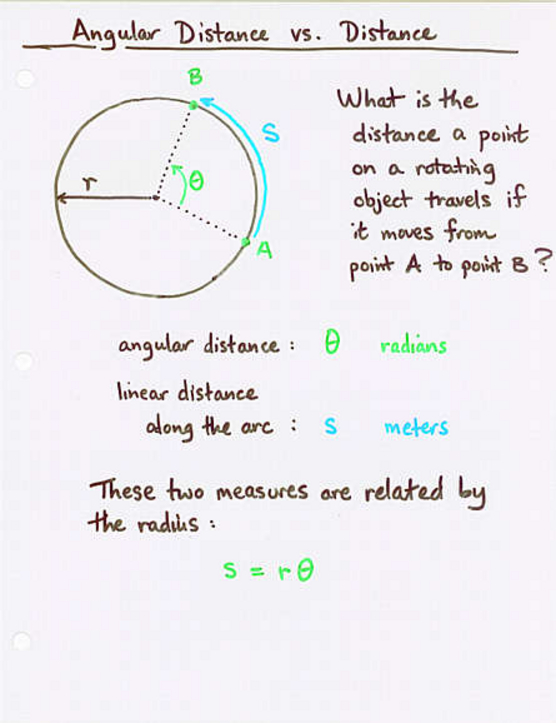 Angular Distance vs. Distance
B
S
r
θ
A
What is the
distance a point
on a rotating
object travels if
it moves from
point A to point B?
angular distance : θ radians
linear distance
along the arc : s meters
These two measures are related by
the radius :
s = r θ